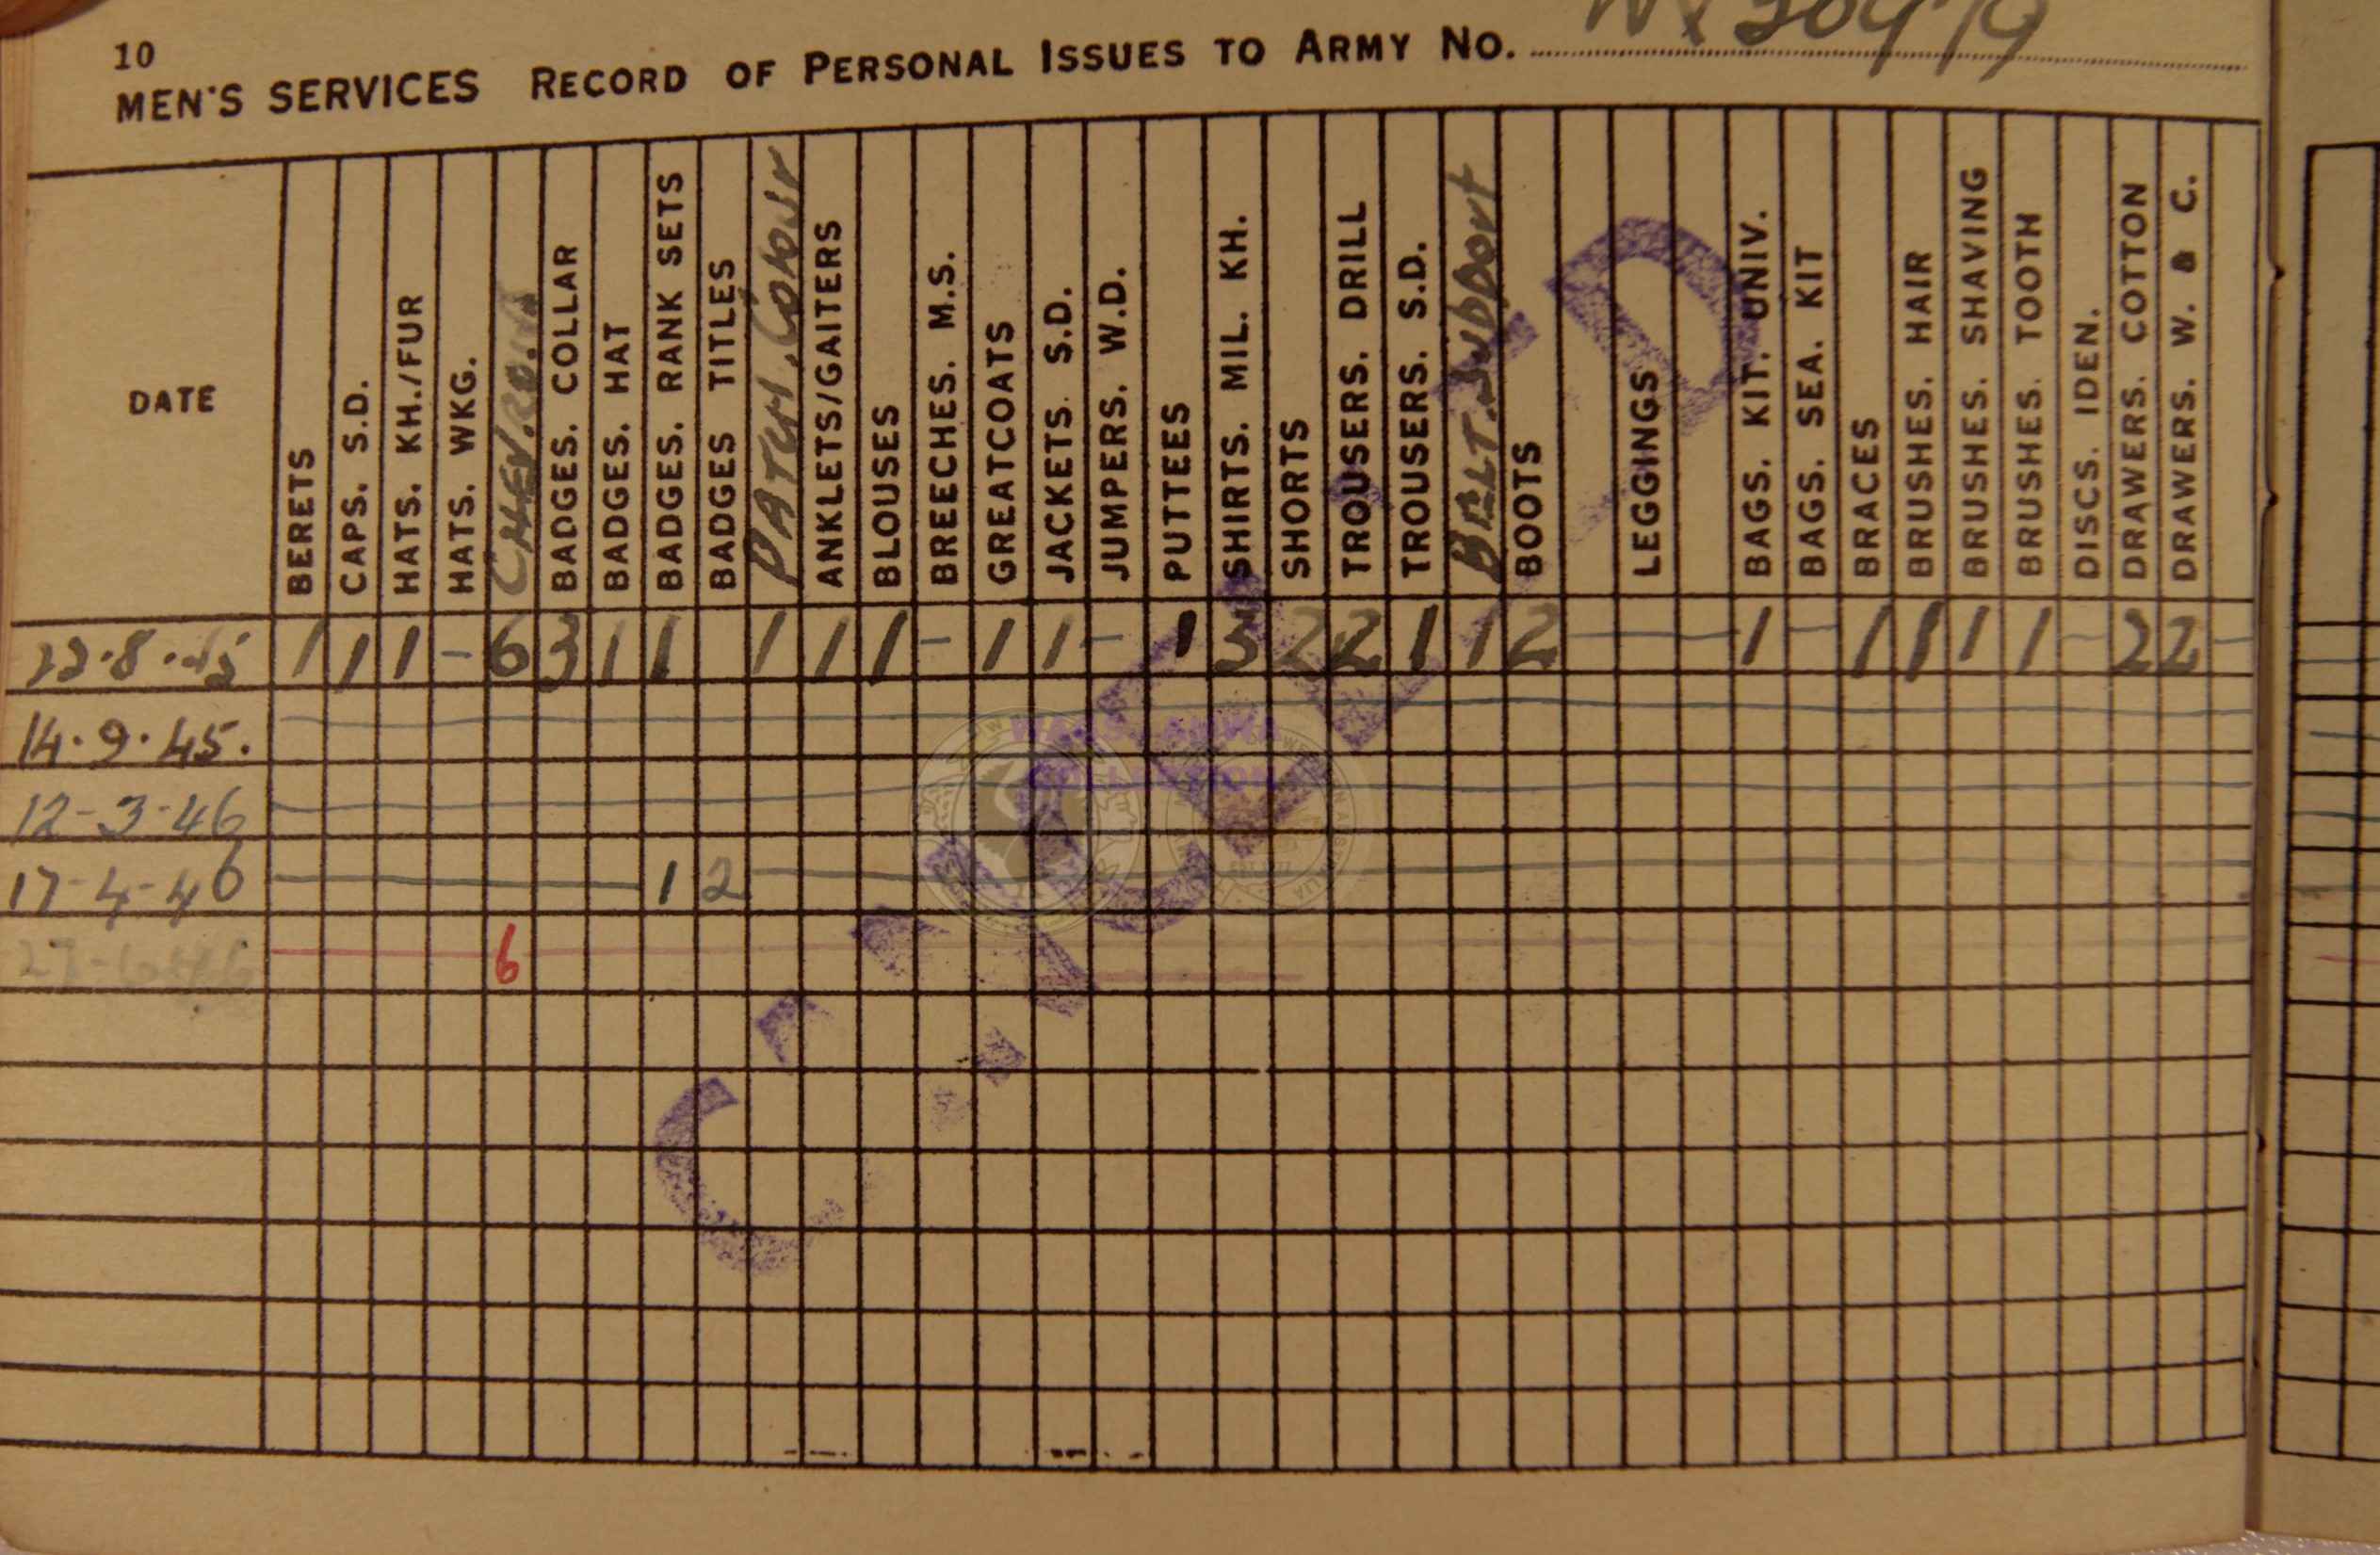 10
MEN'S SERVICES RECORD OF PERSONAL ISSUES TO ARMY NO.
DATE
BERETS
CAPS. S.D.
HATS. KH./FUR
HATS. WKG.
BADGES. COLLAR
BADGES. HAT
BADGES. RANK SETS
BADGES TITLES
PATCH. Colour
ANKLETS/GAITERS
BLOUSES
BREECHES. M.S.
GREATCOATS
JACKETS. S.D.
JUMPERS. W.D.
PUTTEES
SHIRTS. MIL. KH.
SHORTS
TROUSERS. DRILL
TROUSERS. S.D.
BELT. Support
BOOTS
LEGGINGS
BAGS. KIT. UNIV.
BAGS. SEA. KIT
BRACES
BRUSHES. HAIR
BRUSHES. SHAVING
BRUSHES. TOOTH
DISCS. IDEN.
DRAWERS. COTTON
DRAWERS. W. & C.
1 1 1 - 6 3 1 1 1 1 1 - 1 1 - 1 3 2 2 1 1 2 - 1 - 1 1 1 1 - 2 2 -
14.9.45.
12-3-46
17-4-46 1 2
6